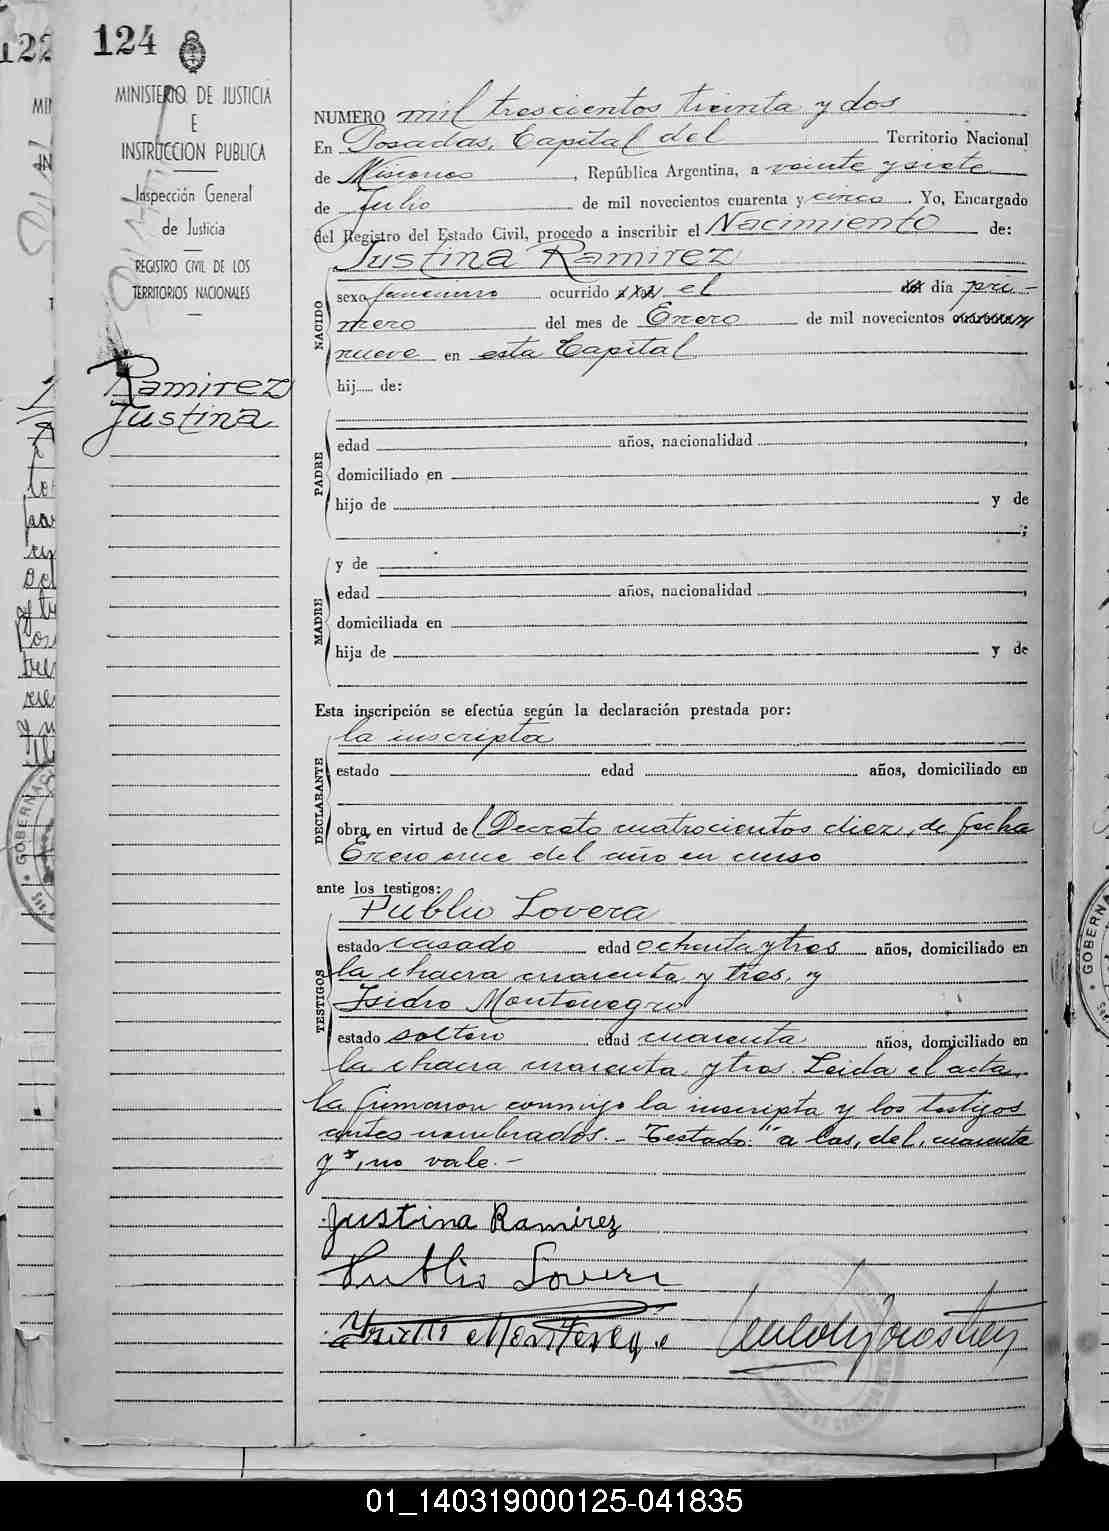 124
MINISTERIO DE JUSTICIA
E
INSTRUCCION PUBLICA
Inspección General
de Justicia
REGISTRO CIVIL DE LOS
TERRITORIOS NACIONALES
Ramirez
Justina
NUMERO mil trescientos treinta y dos
En Posadas, Capital del Territorio Nacional
de Misiones, República Argentina, a veinte y siete
de Julio de mil novecientos cuarenta y cinco. Yo, Encargado
del Registro del Estado Civil, procedo a inscribir el Nacimiento de:
Justina Ramirez
NACIDO
sexo femenino ocurrido el día pri-
mero del mes de Enero de mil novecientos
nueve en esta Capital
hij de:
PADRE
edad años, nacionalidad ,
domiciliado en
hijo de y de
;
MADRE
y de
edad años, nacionalidad ,
domiciliada en
hija de y de
Esta inscripción se efectúa según la declaración prestada por:
DECLARANTE
la inscripta
estado edad años, domiciliado en
obra en virtud del Decreto cuatrocientos diez, de fecha
Enero once del año en curso
ante los testigos:
TESTIGOS
Publio Lovera
estado casado edad ochenta y tres años, domiciliado en
la chacra cuarenta y tres, y
Isidro Montenegro
estado soltero edad cuarenta años, domiciliado en
la chacra cuarenta y tres. Leida el acta,
la firmaron conmigo la inscripta y los testigos
antes nombrados.- Testado: "a las, del, cuarenta
y", no vale.-
Justina Ramirez
Publio Lovera
01_140319000125-041835